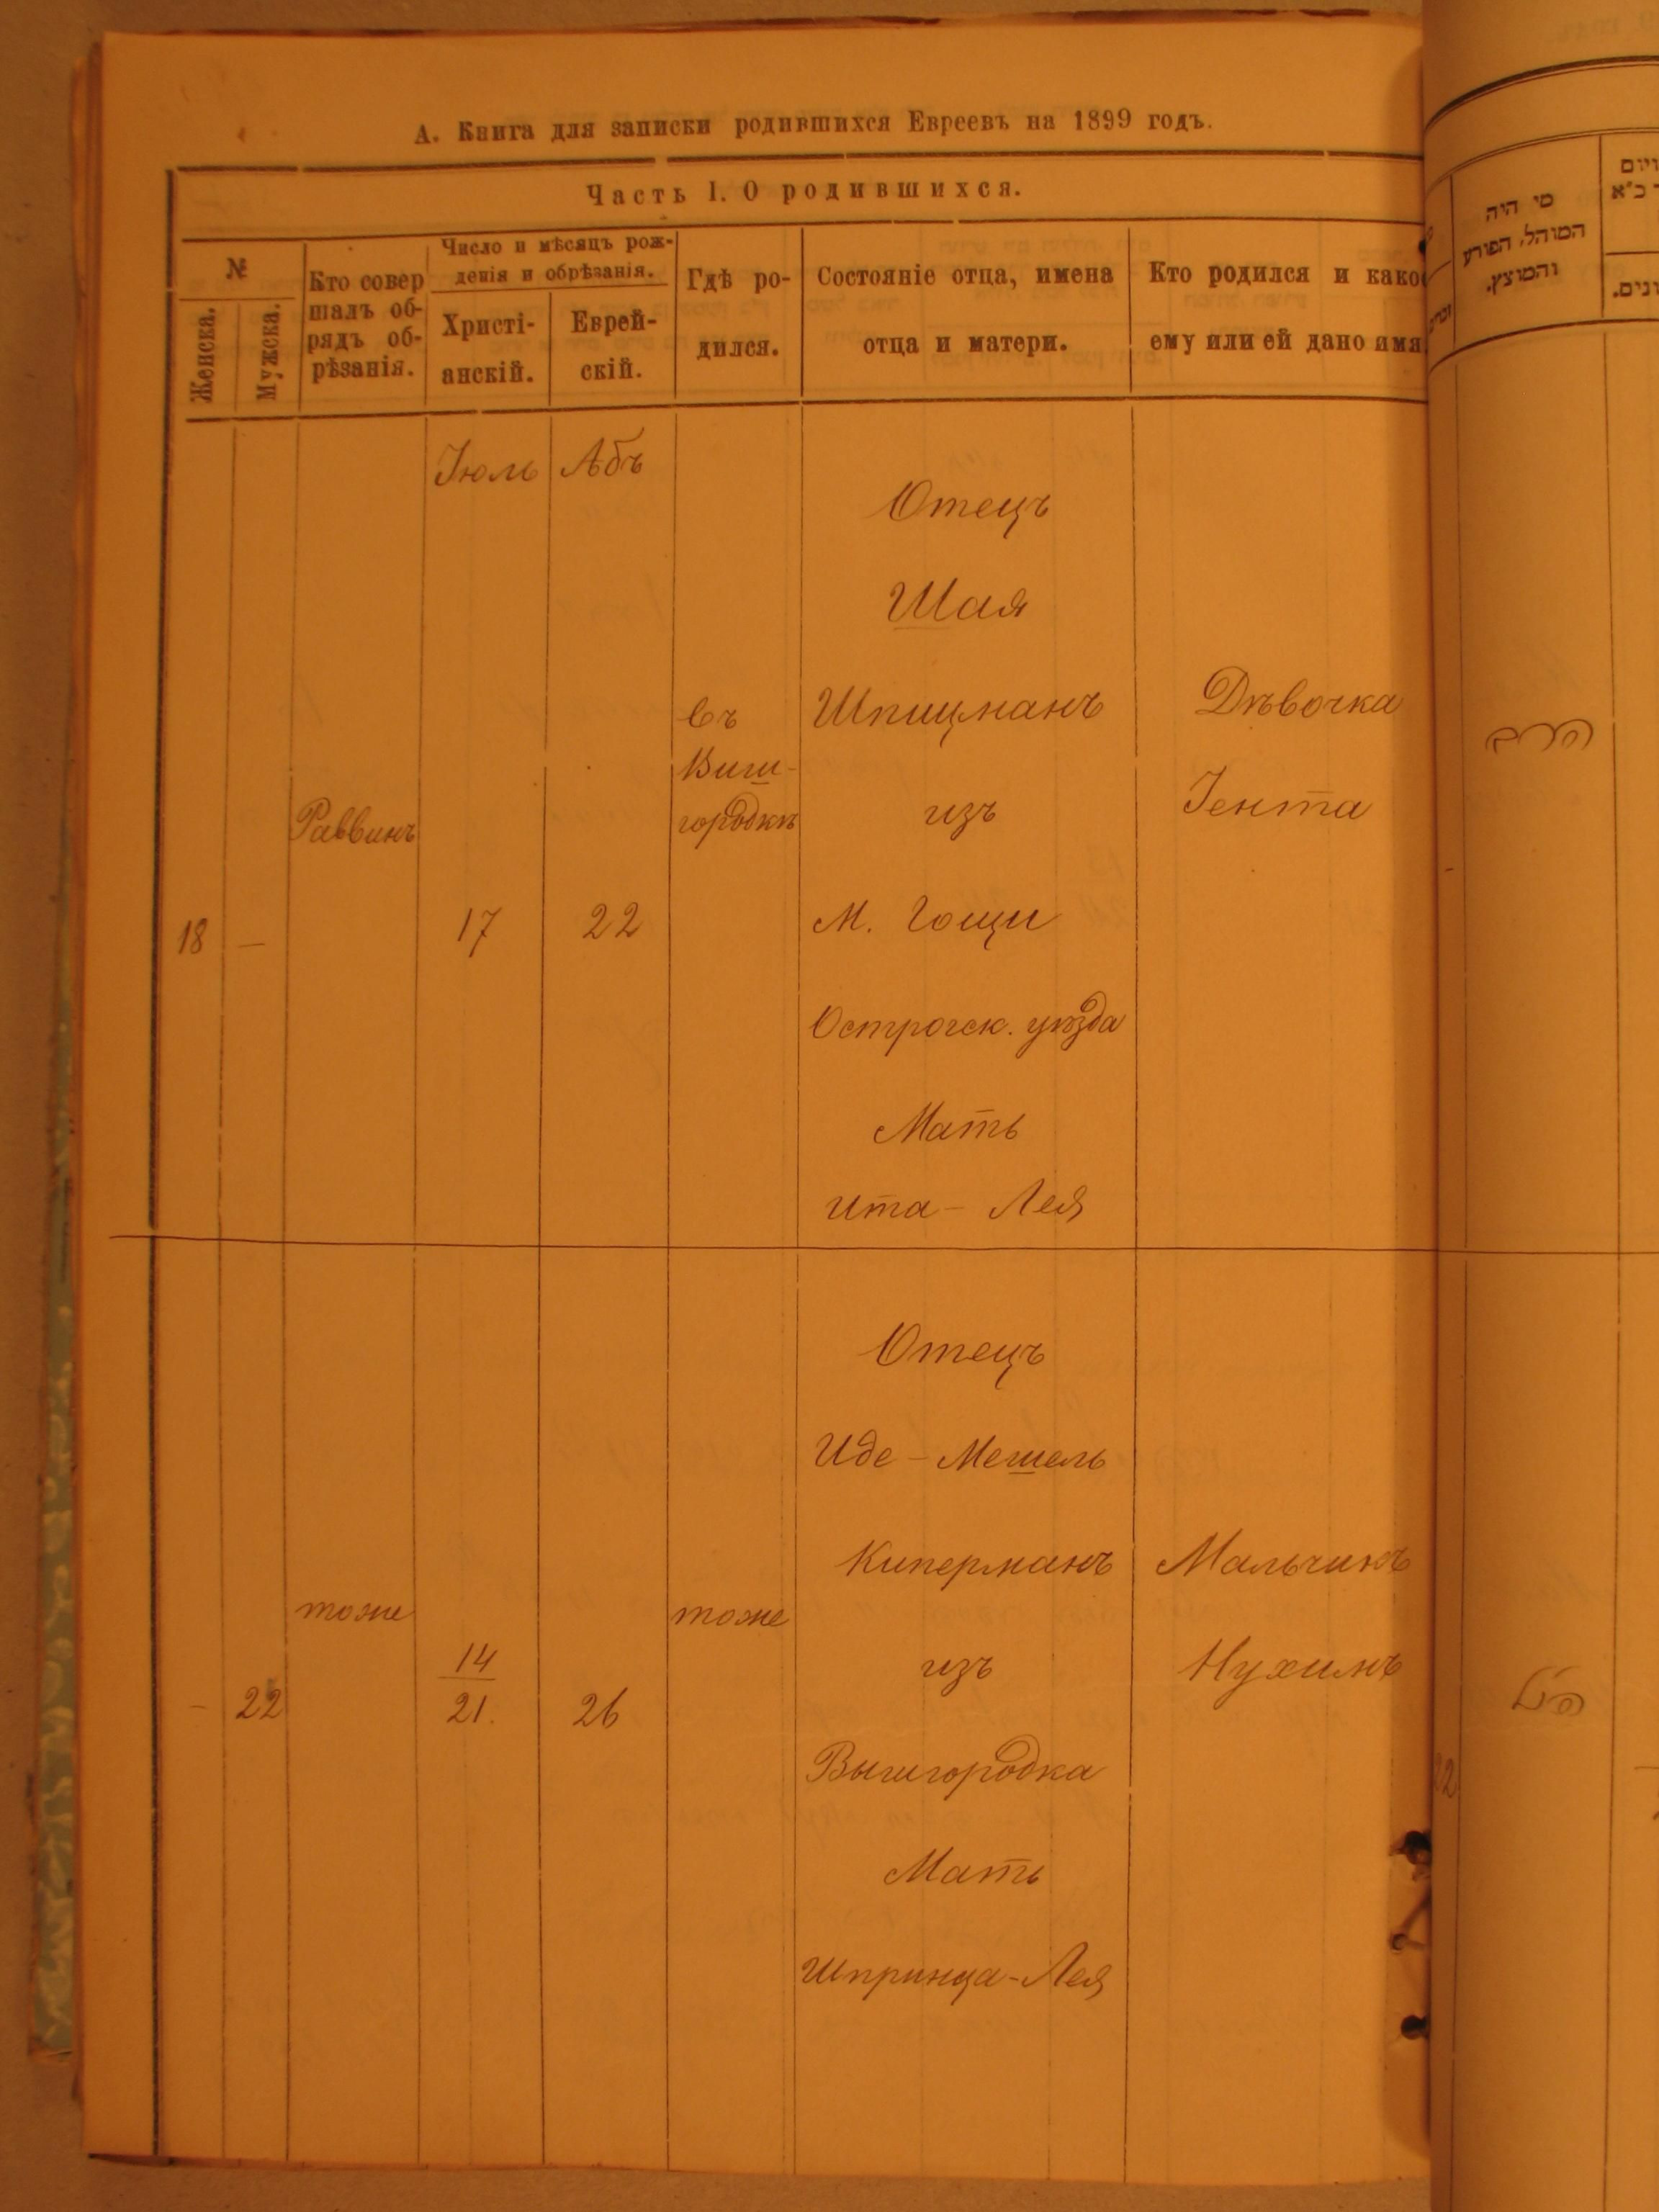 А. Книга для записки родившихся Евреевъ на 1899 годъ.
Часть I. О родившихся.
№
Женска.
Мужска.
Кто совер
шалъ об-
рядъ об-
рѣзанія.
Число и мѣсяцъ рож-
денія и обрѣзанія.
Христі-
анскій.
Еврей-
скій.
Гдѣ ро-
дился.
Состояніе отца, имена
отца и матери.
Кто родился и како
ему или ей дано имя
Іюль
Абъ
18
—
Раввинъ
17
22
въ
Виш-
городкѣ
Отецъ
Шая
Шпицманъ
изъ
М. Гощи
Острогск. уѣзда
Мать
Ита - Лея
Дѣвочка
Іента
-
22
тоже
14
21.
26
тоже
Отецъ
Иде - Мешель
Киперманъ
изъ
Вышгородка
Мать
Шпринца-Лея
Мальчикъ
Нухимъ
מי היה
המוהל, הפורע
והמוצץ.
הרב
22